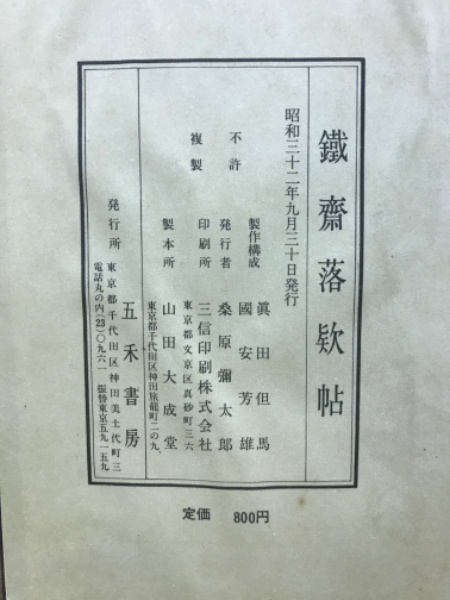 鐵齋落欵帖
昭和三十二年九月三十日発行
不許
複製
製作構成
眞田但馬
國安芳雄
発行者 桑原彌太郎
印刷所 三信印刷株式会社
東京都文京区真砂町三六
製本所 山田大成堂
東京都千代田区神田旅籠町二の九
発行所 五禾書房
東京都千代田区神田美土代町三
電話丸の内(23)〇九六一 振替東京五九一五九
定価 800円